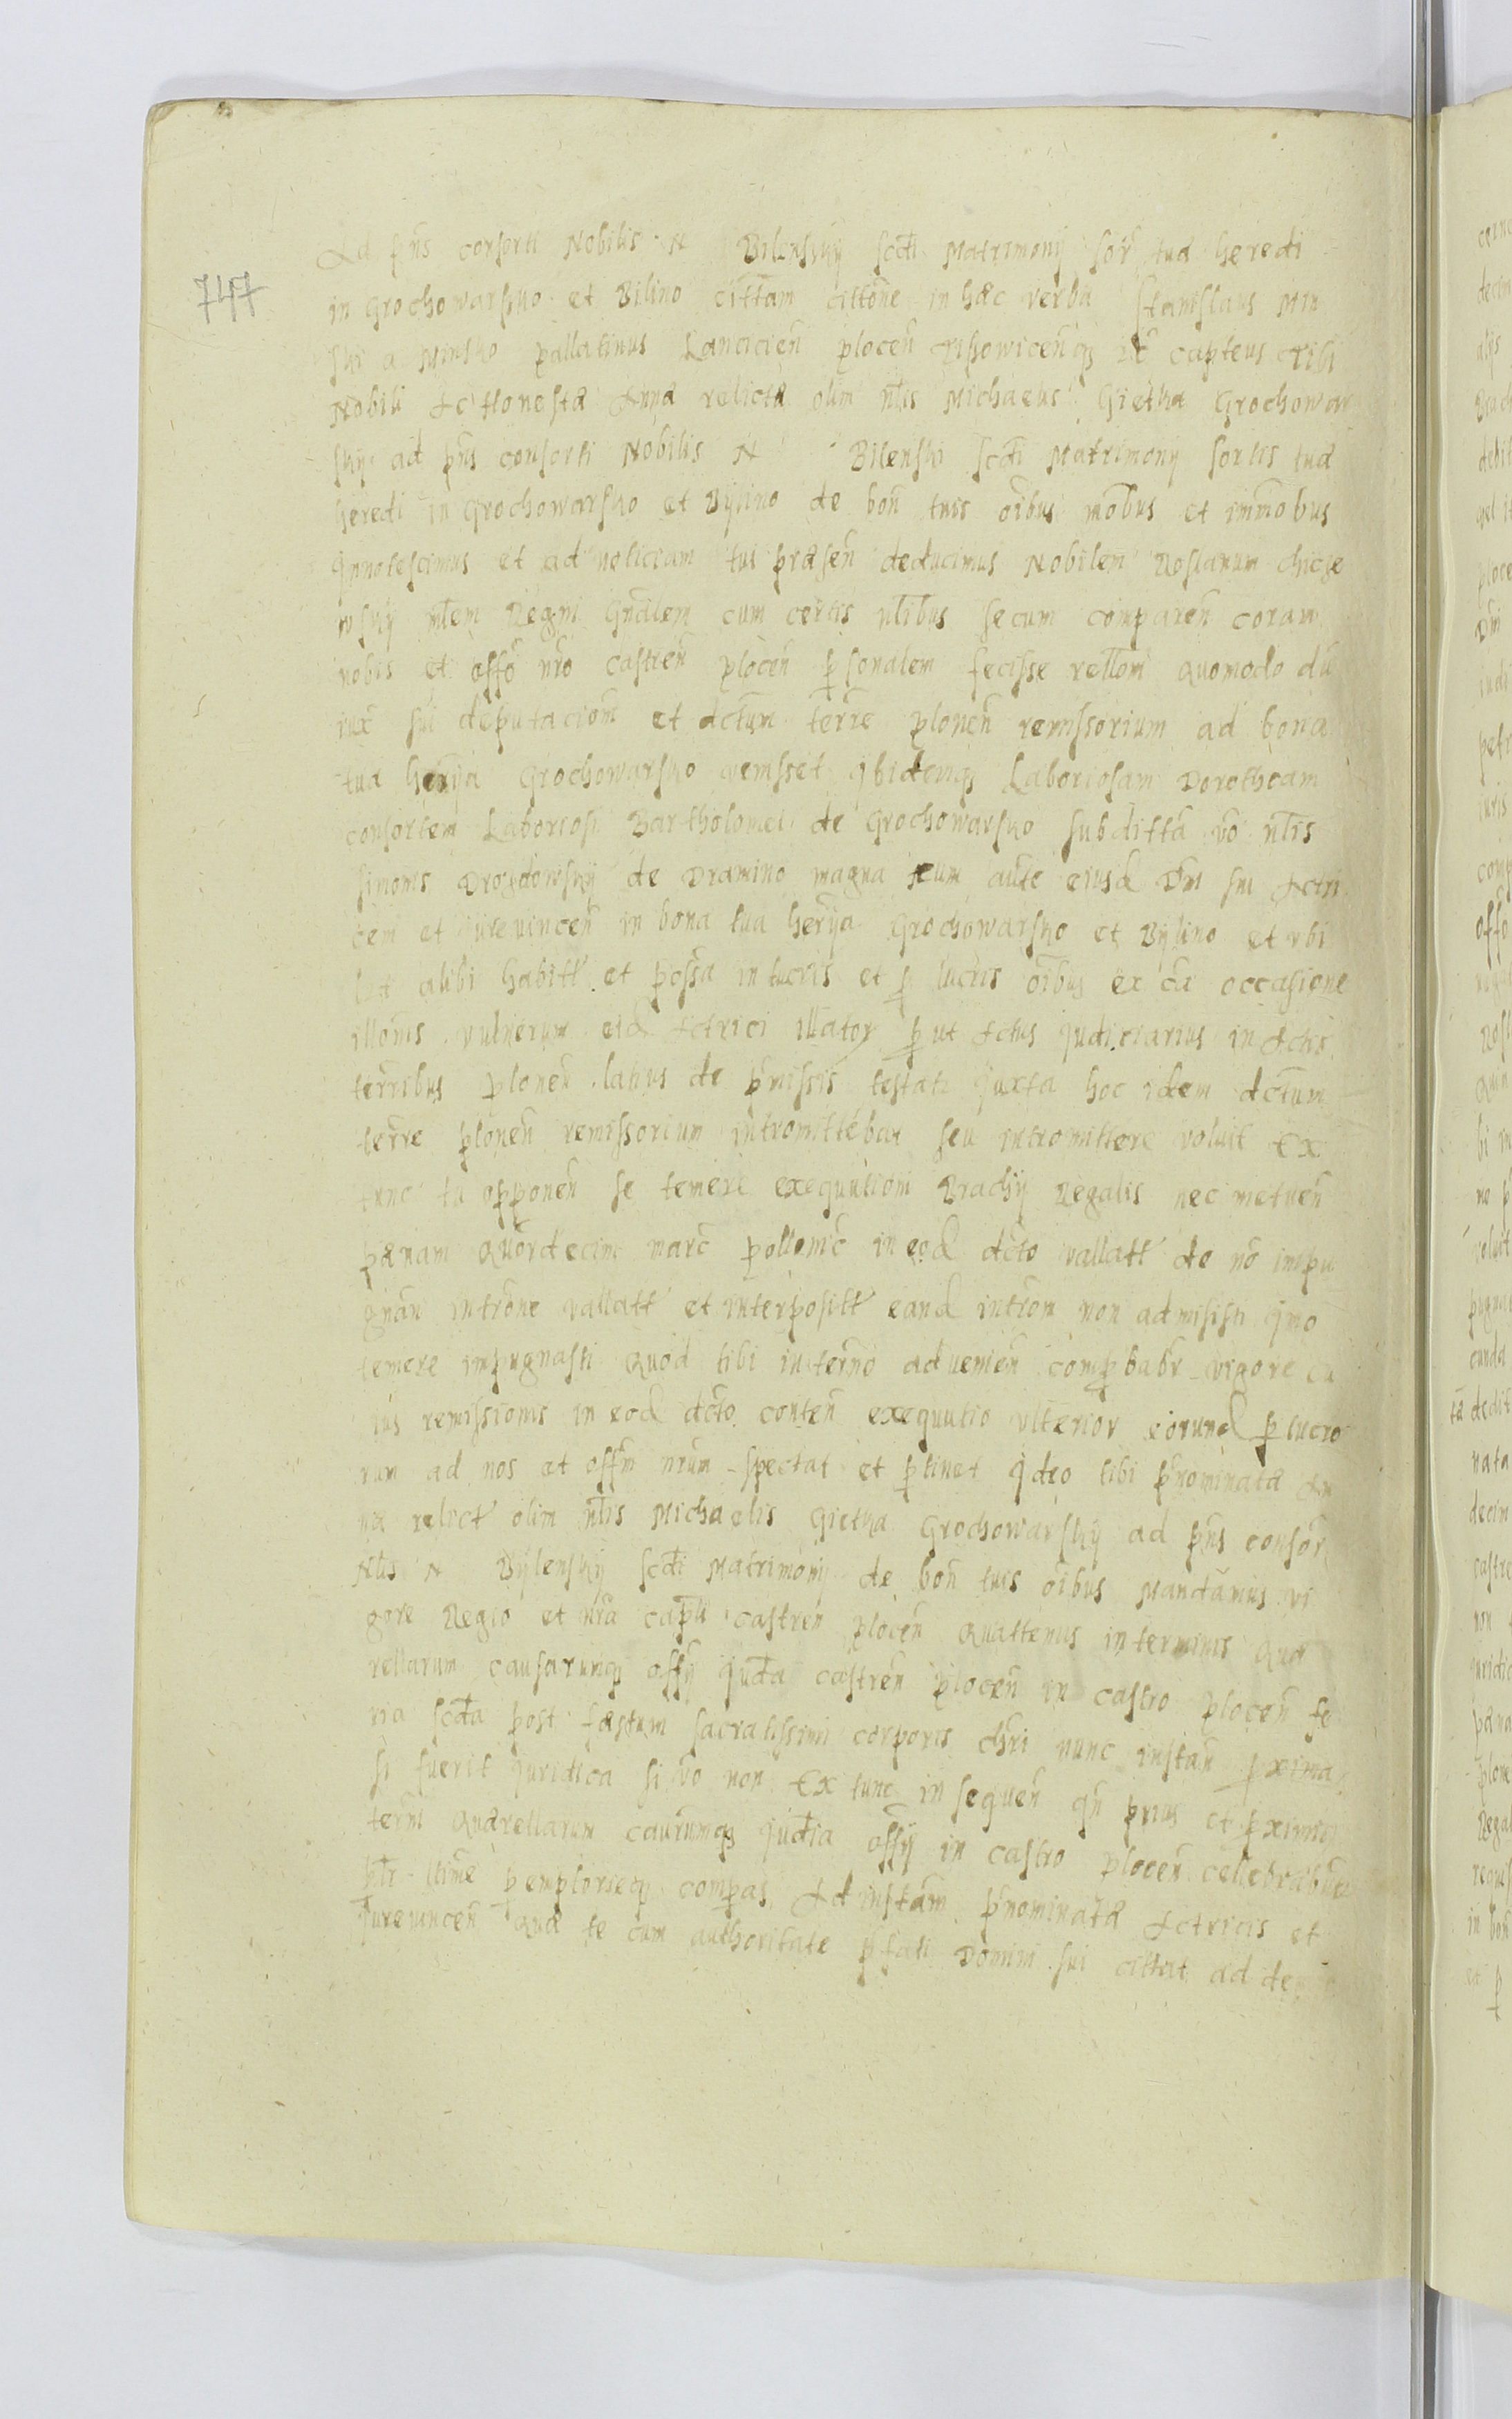 747
Ad pñs consorti Nobilis N Bilensky scdi Matrimonÿ sor tuæ heredi
in Grochowarsko et Bilino cittam cittõne in hæc verba Stanislaus Min
ski a Minsko pallatinus Lancicieñ plocen Gissowiceñq Capteus Tibi
Nobili Ac Honestæ Annæ relictæ olim nłis Michaelis Gietka Grochowar
sky ad pñs consorti Nobilis N Bilenski scdi Matrimony sortis tuæ
heredi in Grochowarsko et Bÿlino de boñ tuis õibus mobus et immobus
Innotescimus et ad noticiam tui præseñ deducimus Nobilem Roslanum chicze
wsky mtem Regni Gñalem cum certis nłibus secum compareñ coram
nobis et offo nro castreñ ploceñ psonalem fecisse rellom Quomodo dũ
iux sui deputaciom et dctum terre ploneñ remissorium ad bona
tua herÿa Grochowarsko venisset Ibidemq Laboriosam Dorotheam
consortem Laboriosi Bartholomei de Grochowarsko subditta vo nłis
simonis Drozdowsky de Dramino magna cum aute eiusd Dñi sui Actri
cem et jurevinceñ in bona tua herÿa Grochowarsko et Bÿlino et vbi
lbt alibi habitt et possa in lucris et p lucris õibus ex ca occasione
illõnis vulnerum eid Actrici illator put Actus judiciarius in Actis
terribus ploneñ latius de pmissis testati juxta hoc idem dctum
terre ploneñ remissorium intromittebat seu intromittere voluit Ex
tunc tu opponeñ se temere exequutioni Brachÿ Regalis nec metueñ
pænam Quordecim marc pollonic in eod dcto vallatt de nõ impu
gnañ introne vallatt et interpositt eand introm non admisisti Imo
temere impugnasti Quod tibi in termo advenieñ compbabr vigore cu
ius remissionis in eod dcto conteñ exequutio vlterior eorund p lucro
rum ad nos et offm nrum spectat et ptinet Ideo tibi pnominatæ An
næ relict olim nłis Michaelis Gietka Grochowarsky ad pñs consor
Nłis N Bÿlensky scdi Matrimony de boñ tuis õibus Mandamus vi
gore Regio et nra captli castreñ ploceñ Quattenus in terminis Quæ
rellarum causarumq offÿ judica castreñ ploceñ in castro ploceñ fe
ria scda post fæstum sacratissimi corporis chri nunc instañ pxima
si fuerit juridica si vo non Ex tunc in sequeñ qñ prius et pximiq
termi Quærellarum caurumq judica offÿ in castro ploceñ cellebrabuñ
pemptorieq compas Ad instam pnominatæ Actricis et
jurevinceñ Quæ te cum authoritate pfati Domini sui cittat ad